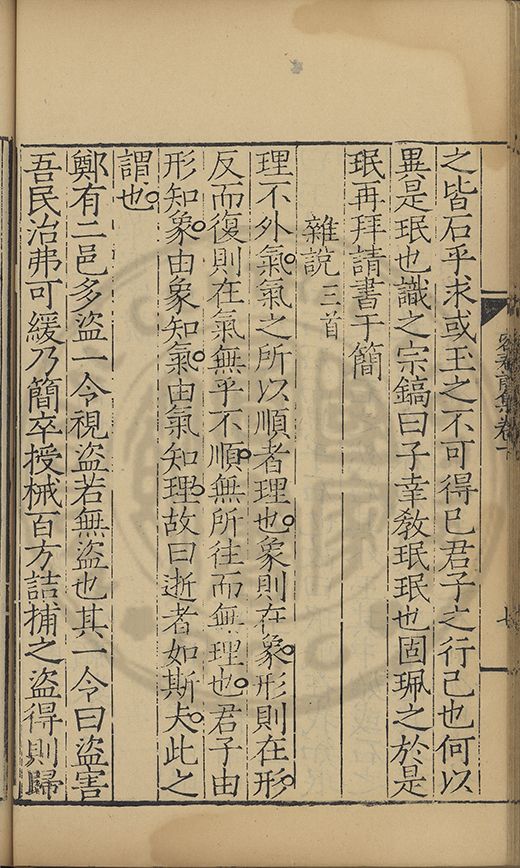 之皆石乎求或玉之不可得已君子之行己也何以
異是珉也識之宗鎬曰子幸敎珉珉也固珮之於是
珉再拜請書于簡
雜說三首
理不外氣氣之所以順者理也象則在象形則在形
反而復則在氣無乎不順無所往而無理也君子由
形知象由象知氣由氣知理故曰逝者如斯夫此之
謂也
鄭有二邑多盜一令視盜若無盜也其一令曰盜害
吾民治弗可緩乃簡卒授械百方詰捕之盜得則歸